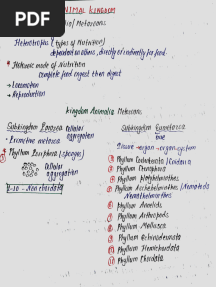 PDF
ANIMAL KINGDOM
Metazoans:
Heterotrophs (types of Nutrition)
depended on others, directly or indirectly for food
* Holozoic mode of Nutrition
Complete food ingest then digest
→ Locomotion
→ Reproduction
kingdom Animalia Metazoans
Subkingdom Parazoa Cellular aggregation
* Primitive metazoa
* Phylum Porifera (sponges)
① Cellular aggregation
1-10 - Non chordates
Subkingdom Eumetazoa
True
Tissue → organ → organ-system
② Phylum Coelenterata / Cnidaria
③ Phylum Ctenophora
④ Phylum Platyhelminthes
⑤ Phylum Aschelminthes / Nematoda
Nemathelminthes
⑥ Phylum Annelida
⑦ Phylum Arthropoda
⑧ Phylum Mollusca
⑨ Phylum Echinodermata
⑩ Phylum Hemichordata
⑪ Phylum Chordata